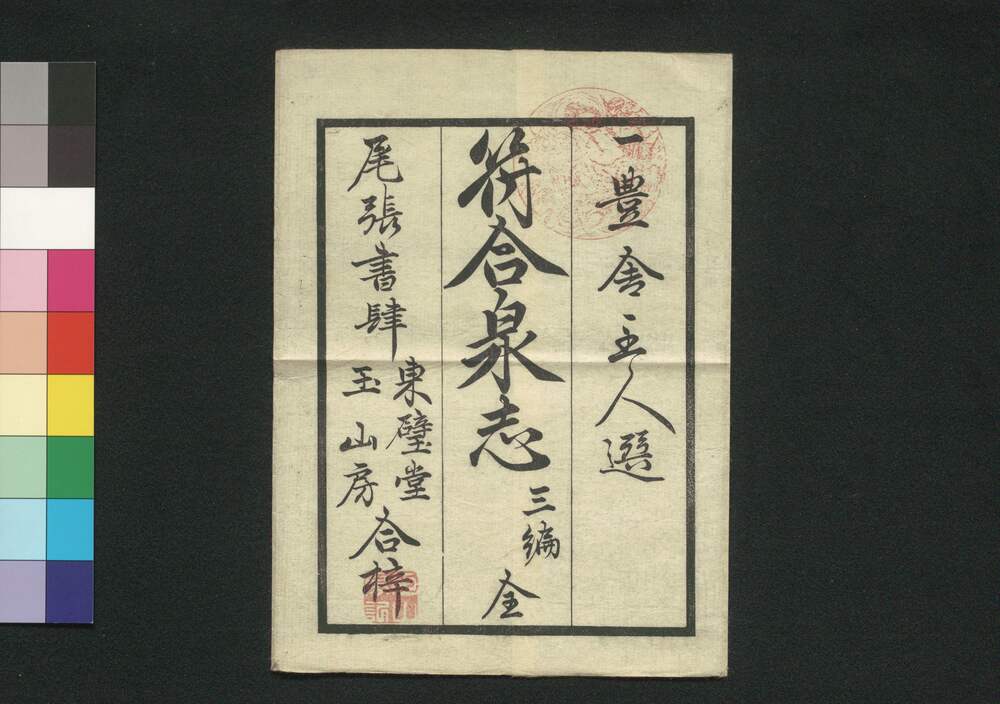 一豊舎主人選
符合泉志 三編 全
尾張書肆
東璧堂
玉山房
合梓